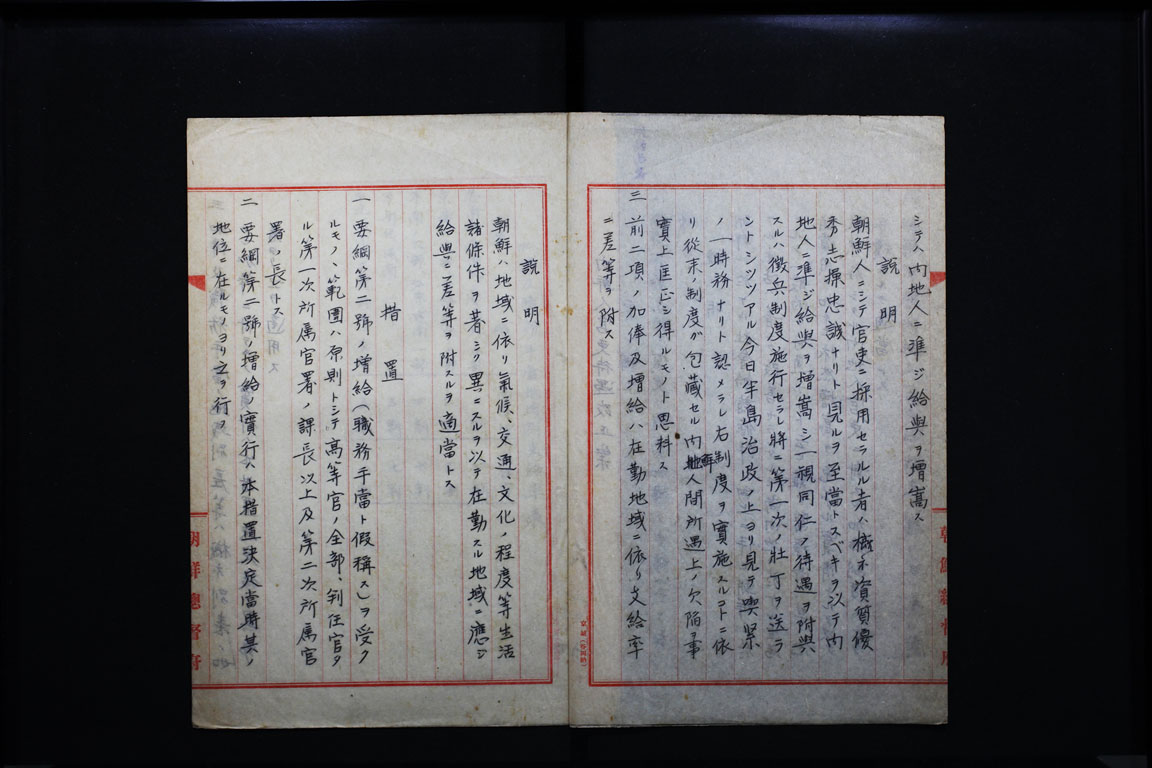 シテハ内地人ニ準ジ給與ヲ增嵩ス
說明
朝鮮人ニシテ官吏ニ採用セラルル者ハ概ネ資質優
秀志操忠誠ナリト見ルヲ至當トスベキヲ以テ內
地人ニ準ジ給與ヲ增嵩シ一視同仁ノ待遇ヲ附與
スルハ徵兵制度施行セラレ將ニ第一次ノ壯丁ヲ送ラ
ントシツツアル今日半島治政ノ上ヨリ見テ喫緊
ノ時務ナリト認メラレ右制度ヲ實施スルコトニ依
リ從來ノ制度ガ包藏セル內鮮人間所遇上ノ欠陷ヲ事
實上匡正シ得ルモノト思料ス
三 前二項ノ加俸及增給ハ在勤地域ニ依リ支給率
ニ差等ヲ附ス
說明
朝鮮ハ地域ニ依リ氣候、交通、文化ノ程度等生活
諸條件ヲ著シク異ニスルヲ以テ在勤スル地域ニ應ジ
給與ニ差等ヲ附スルヲ適當トス
措置
一 要綱第二號ノ增給(職務手當ト假稱ス)ヲ受ク
ルモノノ範圍ハ原則トシテ高等官ノ全部、判任官タ
ル第一次所屬官署ノ課長以上及第二次所屬官
署ノ長トス
二 要綱第二號ノ增給ノ實行ハ本措置決定當時其ノ
地位ニ在ルモノヨリ之ヲ行フ
朝鮮總督府